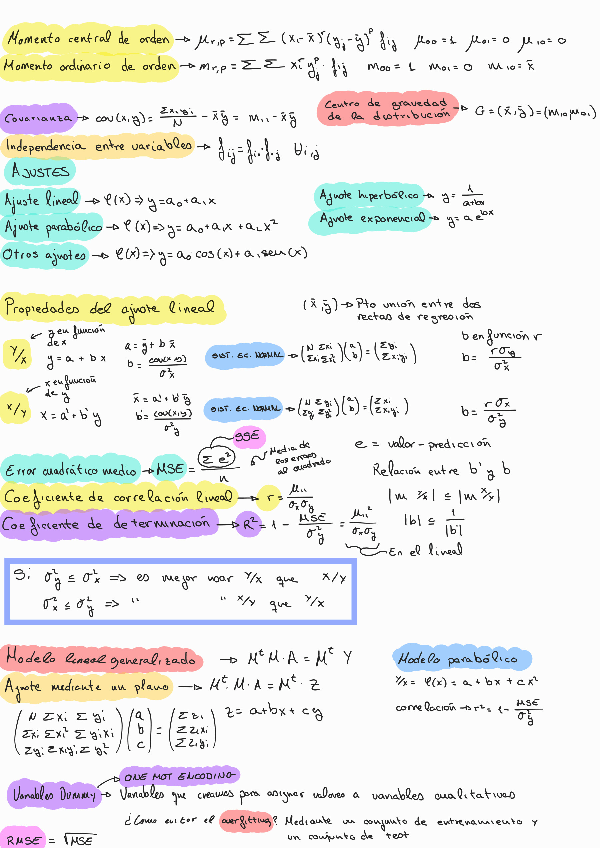 Momento central de orden → μr,p = Σ Σ (xi - x̄)^r (yj - ȳ)^p fij   μ00 = 1   μ01 = 0   μ10 = 0
Momento ordinario de orden → mr,p = Σ Σ xi^r yj^p · fij   m00 = 1   m01 = 0   m10 = x̄
Covarianza → cov(x,y) = Σxiyi/N - x̄ȳ = m11 - x̄ȳ
Centro de gravedad de la distribución → G = (x̄, ȳ) = (m10, m01)
Independencia entre variables → fij = fi· f·j   ∀i,j
AJUSTES
Ajuste lineal → φ(x) ⇒ y = a0 + a1x
Ajuste hiperbólico → y = 1/(a+bx)
Ajuste parabólico → φ(x) ⇒ y = a0 + a1x + a2x²
Ajuste exponencial → y = a e^bx
Otros ajustes → φ(x) ⇒ y = a0 cos(x) + a1 sen(x)
Propiedades del ajuste lineal
(x̄, ȳ) → Pto unión entre dos
rectas de regresión
y en función
de x
Y/x   y = a + bx
a = ȳ + b x̄
b = cov(x,y)/σ²x
SIST. EC. NORMAL → (N Σxi / Σxi Σxi²)(a / b) = (Σyi / Σxiyi)
b en función r
b = rσy/σ²x
x en función
de y
X/y   x = a' + b'y
x̄ = a' + b'ȳ
b' = cov(x,y)/σ²y
SIST. EC. NORMAL → (N Σyi / Σyi Σyi²)(a / b) = (Σxi / Σxiyi)
b = rσx/σ²y
SSE
Error cuadrático medio → MSE = Σe²/n
Media de
los errores
al cuadrado
e = valor - predicción
Relación entre b' y b
Coeficiente de correlación lineal → r = μ11/σxσy
|m y/x| ≤ |m x/y|
Coeficiente de determinación → R² = 1 - MSE/σ²y = μ11²/σxσy
En el lineal
|b| ≤ 1/|b|
Si σ²y ≤ σ²x ⇒ es mejor usar Y/x que X/y
σ²x ≤ σ²y ⇒ " " X/y que Y/x
Modelo lineal generalizado → M^t M · A = M^t Y
Modelo parabólico
Ajuste mediante un plano → M^t · M · A = M^t · Z
Y/x = φ(x) = a + bx + cx²
(N Σxi Σyi / Σxi Σxi² Σyixi / Σyi Σxiyi Σyi²)(a / b / c) = (Σzi / Σzixi / Σziyi)   z = a + bx + cy
correlación → r² = 1 - MSE/σ²y
ONE HOT ENCODING
Variables Dummy → Variables que creamos para asignar valores a variables cualitativas
¿Como evitar el overfitting? Mediante un conjunto de entrenamiento y
un conjunto de test
RMSE = √MSE